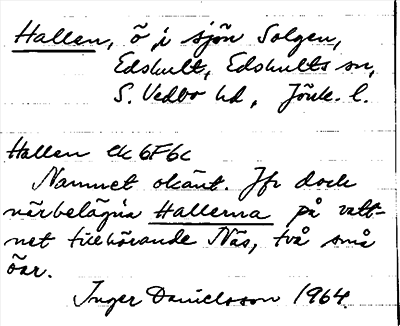 Hallen, ö i sjön Solgen,
Edshult, Edshults sn,
S. Vedbo hd, Jönk. l.
Hallen ek 6F6c
Namnet okänt. Jfr dock
närbelägna Hallerna på vatt-
net tillhörande Näs, två små
öar.
Inger Danielsson 1964.